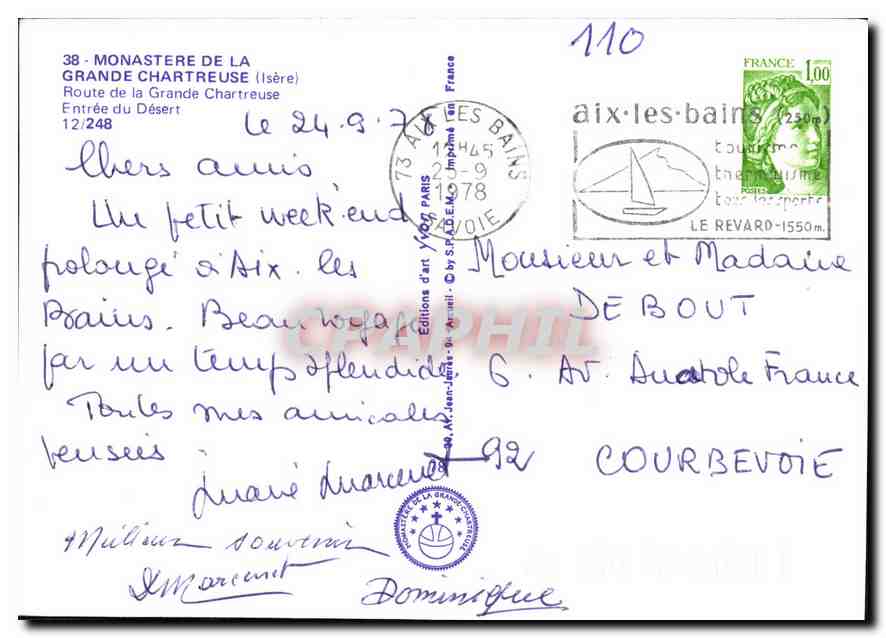 38 - MONASTERE DE LA
GRANDE CHARTREUSE (Isère)
Route de la Grande Chartreuse
Entrée du Désert
12/248
110
le 24.9.78
Chers amis
Un petit week'end
prolongé à Aix. les
Bains. Beau voyage
par un temps splendide.
Toutes mes amicales
pensées.
Marie Marcenet
Meilleurs souvenirs
Marcenet
Dominique
Editions d'art Yvon PARIS
Imprimé en France
Av. Jean-Jaurès - 94 Arcueil - © by S.P.A.D.E.M.
MONASTÈRE DE LA GRANDE-CHARTREUSE
73 AIX LES BAINS
1978
SAVOIE
aix·les·bains (250m)
tourisme
thermalisme
tous les sports
LE REVARD-1550m.
FRANCE
1,00
POSTES
Monsieur et Madame
DEBOUT
6. Av. Anatole France
92 COURBEVOIE
CPAPHIL